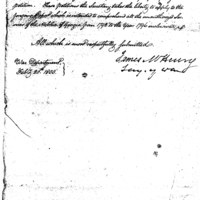 petition. These petitions the Secretary takes the liberty to apply to the
report which is intended to comprehend all the unauthorized
of the Militia of Georgia from 1792 to the Year 1796 inclusively,
All which is most respectfully submitted
James McHenry
Secy. of War
War Department
1800.